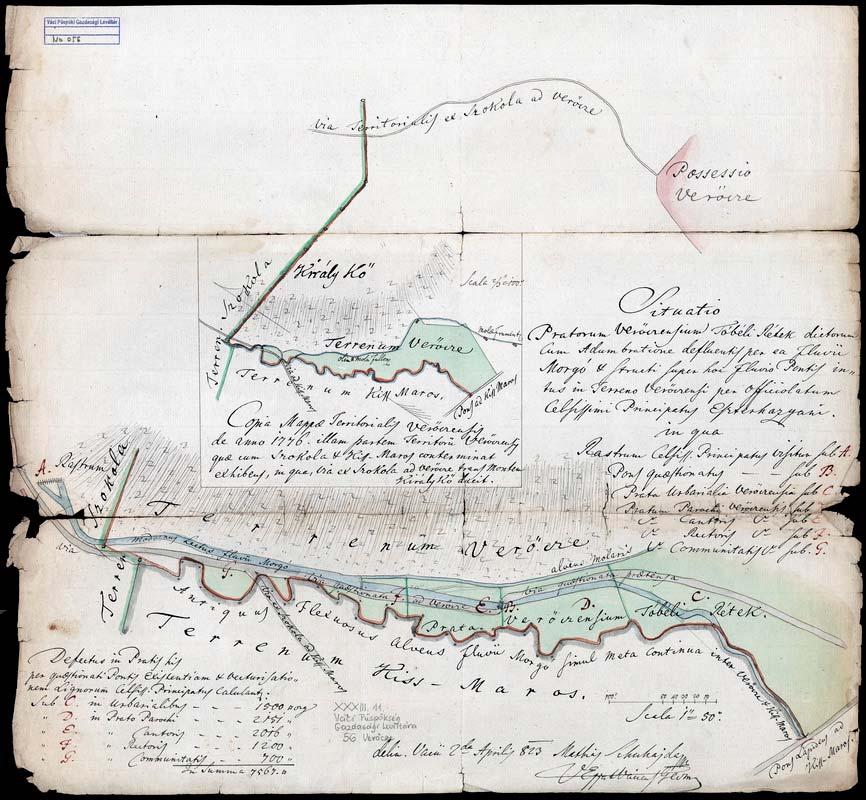 Váci Püspöki Gazdasági Levéltár
No 056
Via Territorialis ex Szokola ad Verőcze
Possessio
Verőcze
Terren. Szokola
"Király Kő"
Scala
Terrenum Verőcze
Terrenum Kiss Maros.
Pons ad Kiss Maros
Copia Mappæ Territorialis Verőczensis
de Anno 1776. illam partem Territorii Verőczensis
quæ cum Szokola & Kis Maros conterminat
exhibens, in qua, via ex Szokola ad verőcze trans Montem
Király Kő ducit.
Situatio
Pratorum Verőczensium Tőbéli Rétek dictorum
Cum Adumbratione defluentis per ea fluvii
Morgó & structi super hoc fluvio Pontis in-
tus in Terreno Verőczensi per officiolatum
Celsissimi Principatus Eszterházyani.
in qua
Rastrum Celsiss. Principatus visitur sub A.
Pons quæstionatus — sub B.
Prata Urbarialia Verőczensia sub C.
Pratum Parochi Verőczensis sub
Cantoris
Rectoris
Communitatis sub G.
A. Rastrum
Via
Terren Szokola
Terrenum Verőcze
Modernus rectus fluvii Morgo
alveus molaris
Via quæstionata prætensa
G.
F.
E.
B.
D.
C.
Prata Verőczensium Tőbéli Rétek.
Antiquus Flexuosus Alveus fluvii Morgó simul Meta Continua inter Verőcze & Kiss Maros
Terrenum
Kiss-Maros.
Pons Lapideus ad
Kiss-Maros
Defectus in Pratis his
per quæstionati Pontis Existentiam & Vecturisatio-
nem Lignorum Celsiss. Principatus Calulanti:
Sub C. in Urbarialibus - - - 1500
" D. in Prato Parochi - - - 2151 "
" E. " Cantoris - - 2016 "
" F. " Rectoris - - 1200 "
" G. " Communitatis - - 700 "
In Summa 7567. "
XXXIII. 11.
Váci Püspökség
Gazdasági Levéltára
56 Verőcze
Scala 1" = 50°.
delin. Vacii 2da Aprilis 823